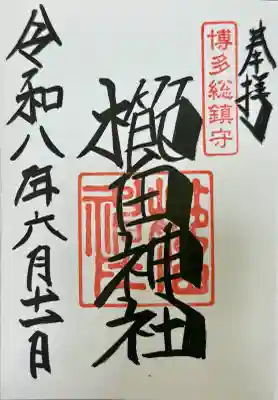 奉拝
博多総鎮守
櫛田神社
令和八年六月十一日